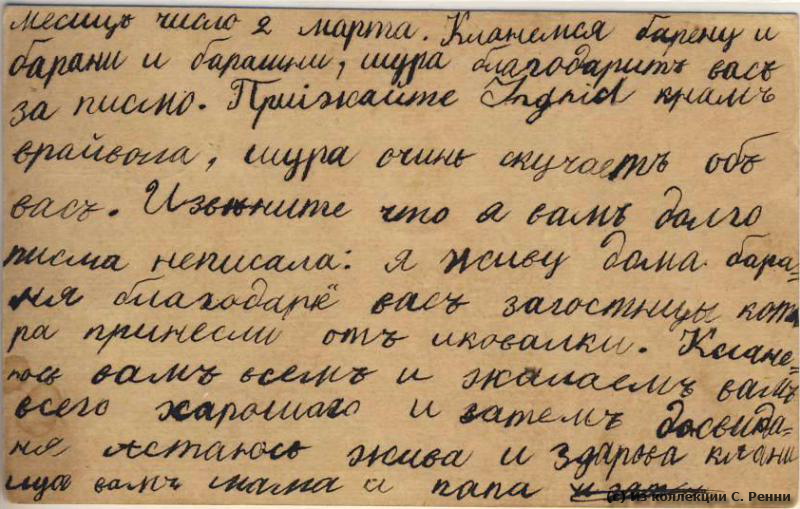 месицъ число 2 марта. Кланемся баренц и
барани и барашни, шура благодаритъ васъ
за писмо. Приіжайте Ingrid крамъ
врайвола, шура очинь скучаетъ объ
васъ. Извените что я вамъ долго
писма неписала: я живу дома бара-
ня благодарё васъ загостинцы кот
ра принесли отъ иковалки. Клане-
юсь вамъ всемъ и жалаемъ вамъ
всего харошаго и затемъ досвида-
ня астаюсь жива и здарова клани
ица вамъ мама и папа
(c) из коллекции С. Ренни